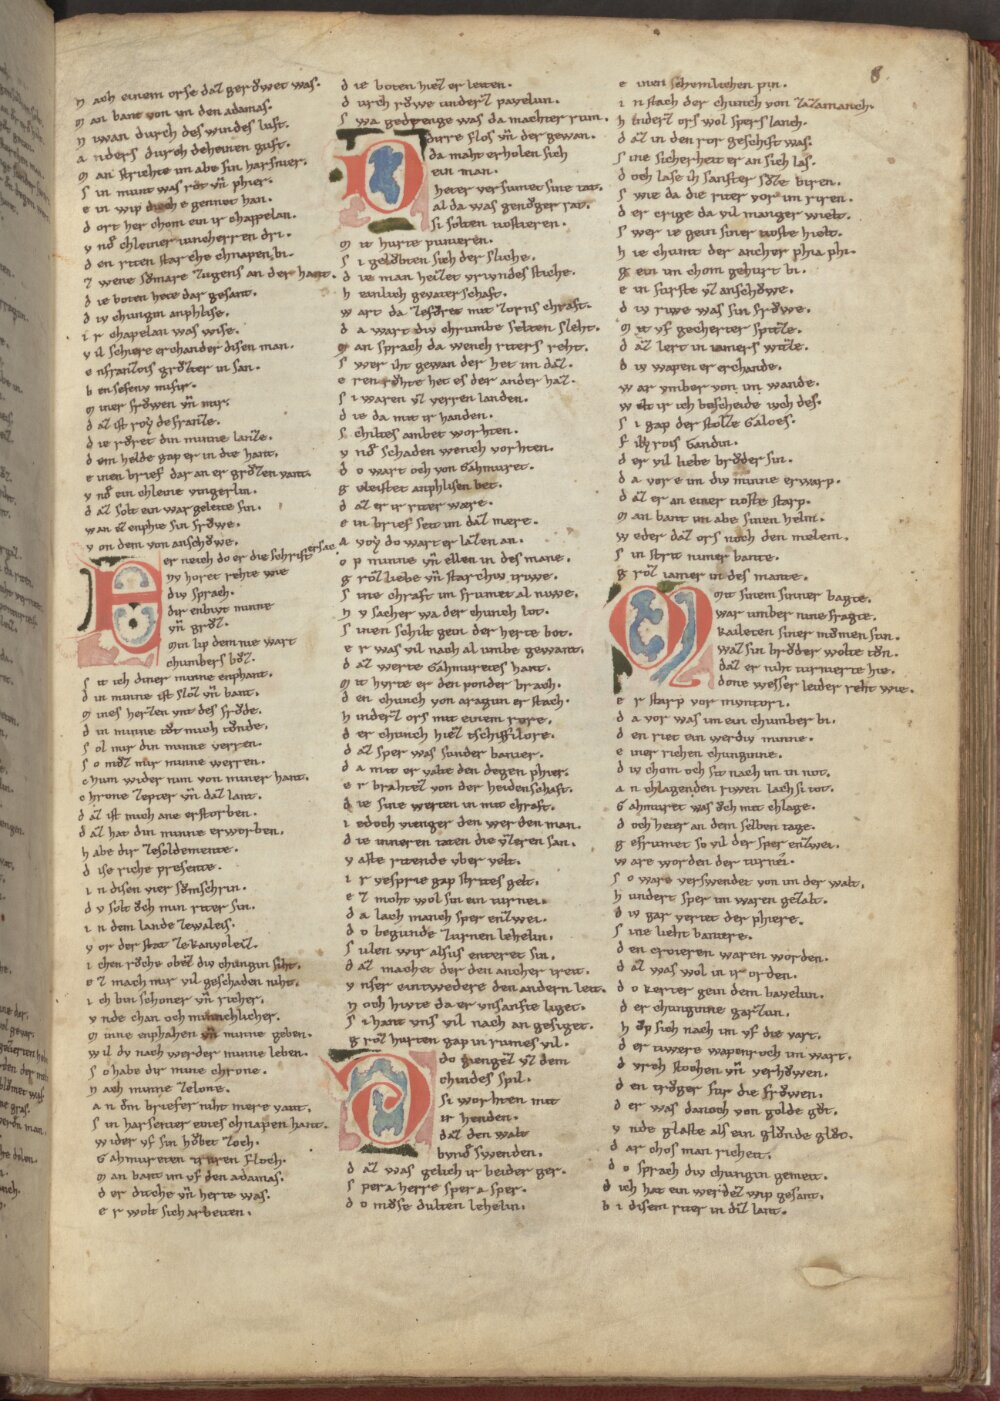 8
n ach einem orse daz gerǒwet was.
m an bant von im den adamas.
n iwan durch des windes luft.
a nders durch deheinen guft.
m an strichte im abe sin harsnier.
s in munt was rot vñ phier.
e in wip die ich e gennet han.
d ort her chom ein ir chappelan.
v nð chleiner iuncherren dri.
d en riten starche chnapen bi.
z wene sǒmare zugens an der hant.
d ie boten hete dar gesant.
d iv chungin anphlise.
i r chapelan was wise.
v il schiere erchander disen man.
e nfranzois grǒzter in san.
b ensefenv misir.
m iner frǒwen vñ mir.
d az ist roẏ de franze.
d ie rǒret din minne lanze.
d em helde gap er in die hant.
e inen brief dar an er grǒzen vant.
v nð ein chleine vingerlin.
d az solt ein wargeleite sin.
wan ez enphie sin frǒwe.
v on dem von anschǒwe.
er neich do er die schrift ersac.
nv horet rehte wie
div sprach.
dir enbivt minne
vñ grǒz.
min lip dem nie wart
chumbers bǒz.
s it ich diner minne enphant.
d in minne ist sloz vñ bant.
m ines herzen vnt des frǒde.
d in minne tǒt mich tǒnde.
s ol mir din minne verren.
s o mǒz mir minne werren.
c hum wider nim von miner hant.
chrone zepter vñ daz lant.
d az ist mich ane erstorben.
d az hat din minne erworben.
h abe dir zesoldemente.
d ise riche presente.
i n disen vier sǒmschrin.
d v solt ǒch min riter sin.
i n dem lande zewaleis.
v or der stat zekanvoleiz.
i chen rǒche obez div chungin siht.
e z mach mir vil geschaden niht.
i ch bin schoner vñ richer.
v nde chan och minnchlicher.
m inne enphahen vñ minne geben.
wil dv nach werder minne leben.
s o habe dir mine chrone.
n ach minne zelone.
a n dǒm briefer niht mere vant.
s in harsenier eines chnapen hant.
w ider vf sin hǒbet zoch.
G ahmureten trvren floch.
m an bant im vf den adamas.
d er diche vñ herte was.
e r wolt sich arbeiten.
d ie boten hiez er leiten.
d urch rǒwe underz pavelun.
s wa gedrenge was da machter rum.
Dirre flos vñ der gewan.
da maht erholen sich
ein man.
heter versumet sine tat.
al da was genǒger rat.
si solten iustieren.
m it hurte punieren.
s i gelǒbten sich der sliche.
d ie man heizet vriundes stiche.
h einlich gevaterschaft.
w art da zesǒret mit zorns chraft.
d a wart div chrumbe selten sleht.
m an sprach da wench riters reht.
s wer iht gewan der het im daz.
e ren rǒhte het es der ander haz.
s i waren vz verren landen.
d ie da mit ir handen.
s chiltes ambet worhten.
v nð schaden wench vorhten.
d o wart och von Gahmuret.
g eleistet anphlisen bet.
d az er ir riter ware.
e in brief seit im daz mære.
a voẏ do wart er lazen an.
o p minne vñ ellen in des mane.
g rǒz liebe vñ starchiv triwe.
s ine chraft im frumet al niuwe.
n v sacher wa der chunch lot.
s inen schilt gein der herte bot.
e r was vil nach al umbe gewant.
d az werte Gahmuretes hant.
m it hvrte er den ponder brach.
d en chunch von aragun er stach.
h inderz ors mit einem rore.
d er chunch hiez tschifilore.
d az sper was sunder banier.
d a mit er valte den degen phier.
e r brahtez von der heidenschaft.
d ie sine werten in mit chraft.
i edoch vienger den werden man.
d ie inneren taten die vzeren san.
v aste ritende vber velt.
i r vesprie gap strites gelt.
e z moht wol sin ein turnei.
d a lach manch sper enzwei.
d o begunde zurnen lehelin.
s ulen wir alsus enteret sin.
d az machet der den ancher treit.
v nser eintwedere den andern leit.
n och hivte da er vnsanfte liget.
s i hant vns vil nach an gesiget.
g roz hurten gap in rumes vil.
do giengez vz dem
chindes spil.
si worhten mit
ir henden.
daz den walt
bvnð swenden.
d az was gelich ir beider ger.
s per a herre sper a sper.
d o mǒse dulten lehelin.
e inen schemlichen pin.
i n stach der chunch von zazamanch.
h inderz ors wol spers lanch.
d az in den ror geschift was.
s ine sicherheit er an sich las.
d och lase ih sanfter sǒze biren.
s wie da die riter vor im riren.
d er crige da vil manger wielt.
s wer ie gein siner tioste hielt.
h ie chumt der ancher phia phi.
g ein im chom gehurt bi.
e in furste vz anschǒwe.
d iv riwe was sin frǒwe.
m it vf gecherter spitze.
d az lert in iamers witze.
d iv wapen er erchande.
w ar vmber von im wande.
w elt ir ich bescheide iuch des.
s i gap der stolze Galoes.
f iliẏ rois Gandin.
d er vil liebe brǒder sin.
d a vor e im div minne erwarp.
d az er an einer tioste starp.
m an bant im abe sinen helm.
w eder daz ors noch den melem.
s in strit nimer bante.
g roz iamer in des mante.
Mit sinem sinner bagte.
war umber niene fragte.
kaileten siner mǒmen sun.
waz sin brǒder wolte tǒn.
daz er niht turnierte hie.
done wesser leider reht wie.
e r starp vor mvntori.
d a vor was im ein chumber bi.
d en riet ein werdiv minne.
e iner richen chunginne.
d iv chom och sit nach im in not.
a n chlagenden riwen lach si tot.
G ahmuret was ǒch mit chlage.
d och heter an dem selben tage.
g efrumet so vil der sper enzwei.
w are worden der turnei.
s o ware verswendet von im der walt.
h undert sper im waren gezalt.
d iv gar vertet der phiere.
s ine lieht baniere.
d en croieren waren worden.
d az was wol in ir orden.
d o kerter gein dem bavelun.
d er chunginne garzun.
h ǒp sich nach im vf die vart.
d er tivvere wapenroch im wart.
d vrch stochen vñ verhǒwen.
d en trǒger fur die frǒwen.
d er was danoch von golde gǒt.
v nde glaste als ein glǒnde glǒt.
d ar chos man richeit.
d o sprach div chungin gemeit.
d ich hat ein werdez wip gesant.
b i disem riter in diz lant.